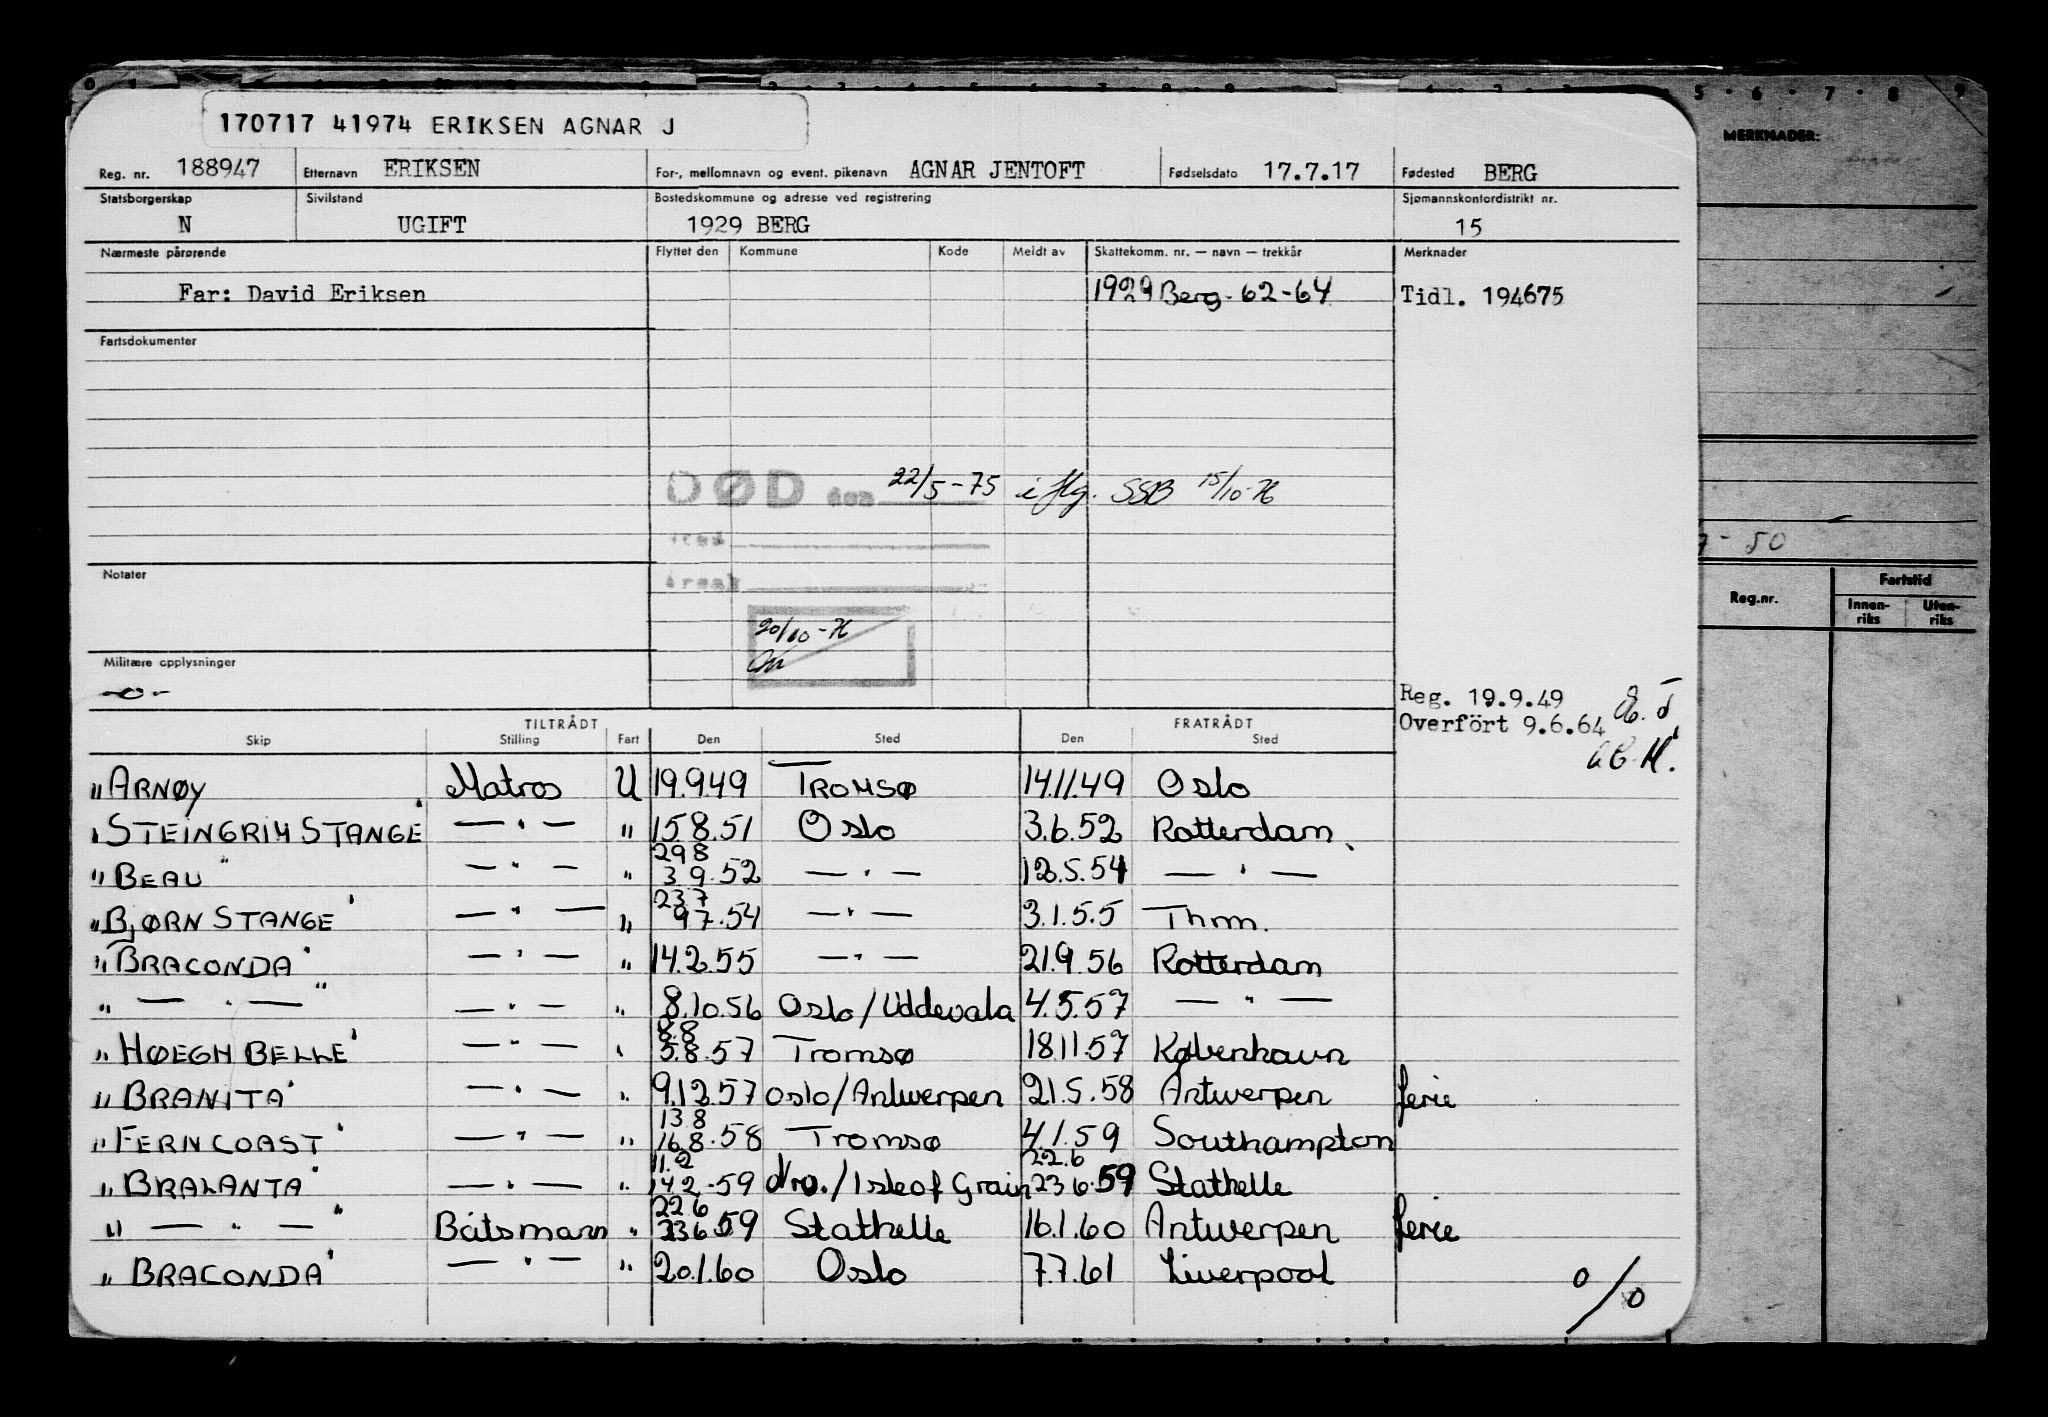 170717 41974 ERIKSEN AGNAR J
Reg. nr. 188947 Etternavn ERIKSEN For-, mellomnavn og event. pikenavn AGNAR JENTOFT Fødselsdato 17.7.17 Fødested BERG
Statsborgerskap Sivilstand Bostedskommune og adresse ved registrering Sjømannskontordistrikt nr.
N UGIFT 1929 BERG 15
Nærmeste pårørende Flyttet den Kommune Kode Meldt av Skattekomm. nr. — navn — trekkår Merknader
Far: David Eriksen 1929 Berg-62-64 Tidl. 194675
Fartsdokumenter
DØD den 22/5-75 iflg. SSB 15/10-76
sted
årsak
Notater
20/10-76
Militære opplysninger
-o-
Reg. 19.9.49
Overfört 9.6.64
TILTRÅDT FRATRÅDT
Skip Stilling Fart Den Sted Den Sted
"ARNØY Matros U 19.9.49 TROMSØ 14.11.49 Oslo
"STEINGRIM STANGE" — " — " 15.8.51 Oslo 3.6.52 Rotterdam
29 8
"BEAU" — " — " 3 9.52 — " — 12.5.54 — " —
23 7
"BJØRN STANGE" — " — " 9 7.54 — " — 3.1.55 Thm.
"BRACONDA" — " — " 14.2.55 — " — 21.9.56 Rotterdam
" — " — " — " — " 8.10.56 Oslo/Uddevala 4.5.57 — " —
8.8
"HØEGH BELLE" — " — " 5.8.57 Tromsø 18.11.57 København
"BRANITA" — " — " 9.12.57 Oslo/Antwerpen 21.5.58 Antwerpen ferie
13 8
"FERNCOAST" — " — " 16.8.58 Tromsø 4.1.59 Southampton
11.2 22.6
"BRALANTA" — " — " 14 2.59 /Isle of Grain 23 6.59 Stathelle
22 6
" — " — " Båtsmann " 23 6.59 Stathelle 16.1.60 Antwerpen ferie
"BRACONDA" — " — " 20.1.60 Oslo 7.7.61 Liverpool
0/0
MERKNADER:
7 - 50
Reg.nr. Fartstid
Innen- Uten-
riks riks